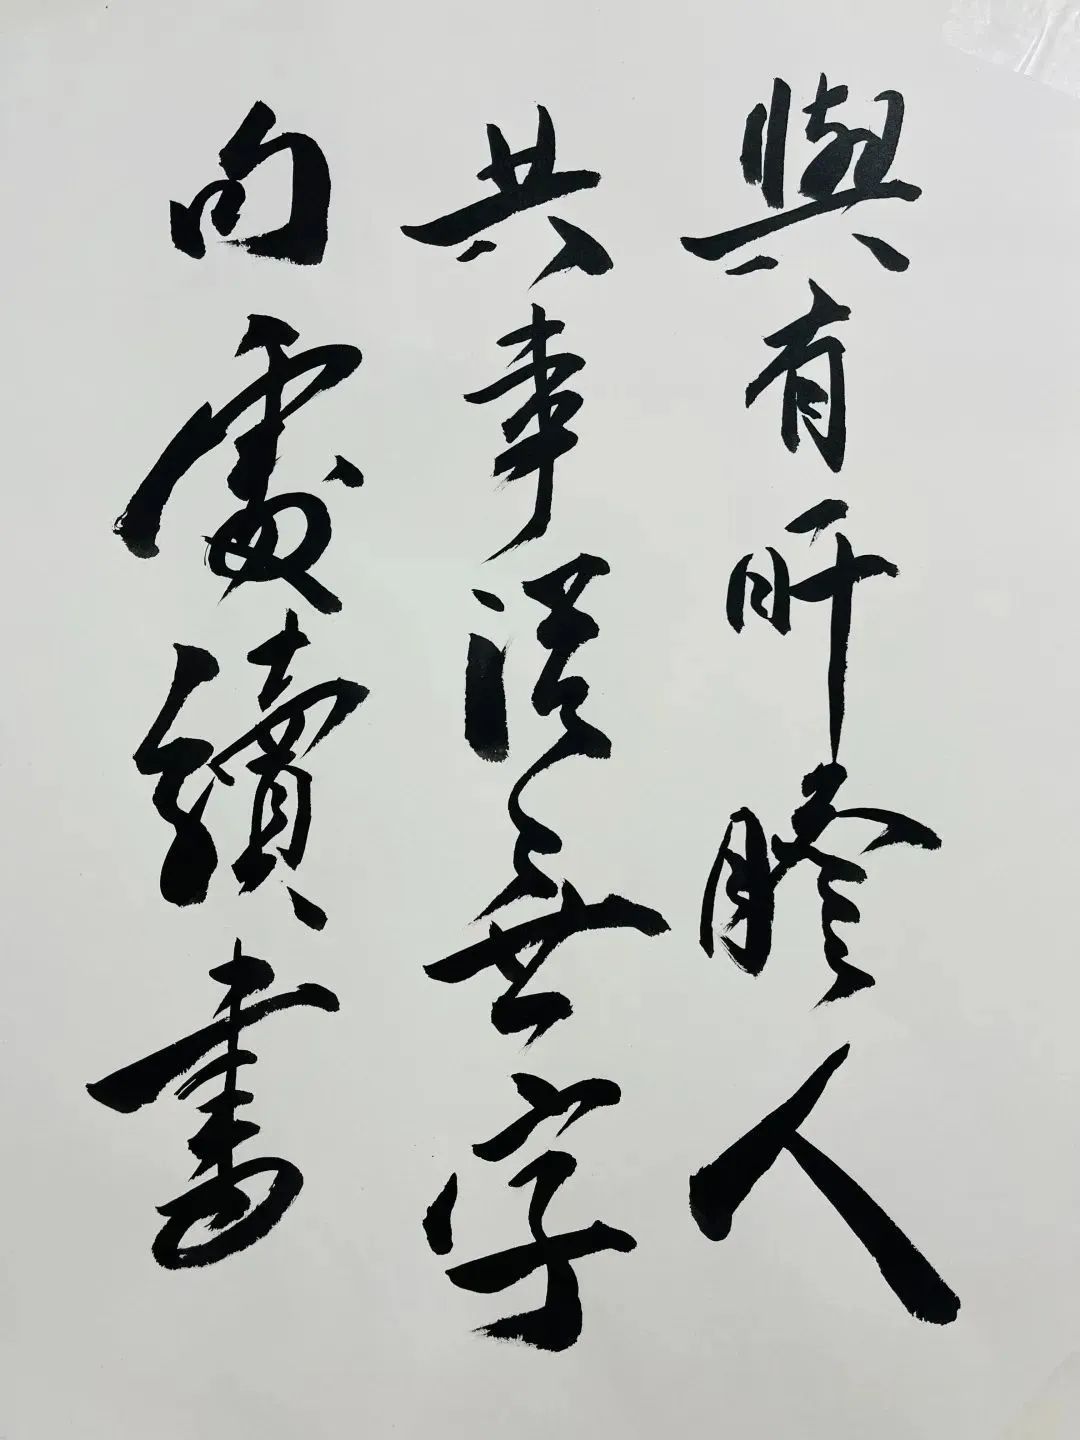 與有肝膽人
共事從無字
句處續書